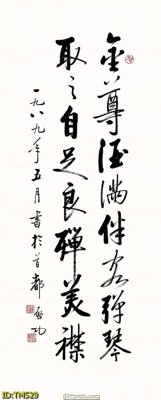 金尊酒满伴客弹琴
取之自足良殚美襟
一九八九年五月书于首都 启功
ID:TM529